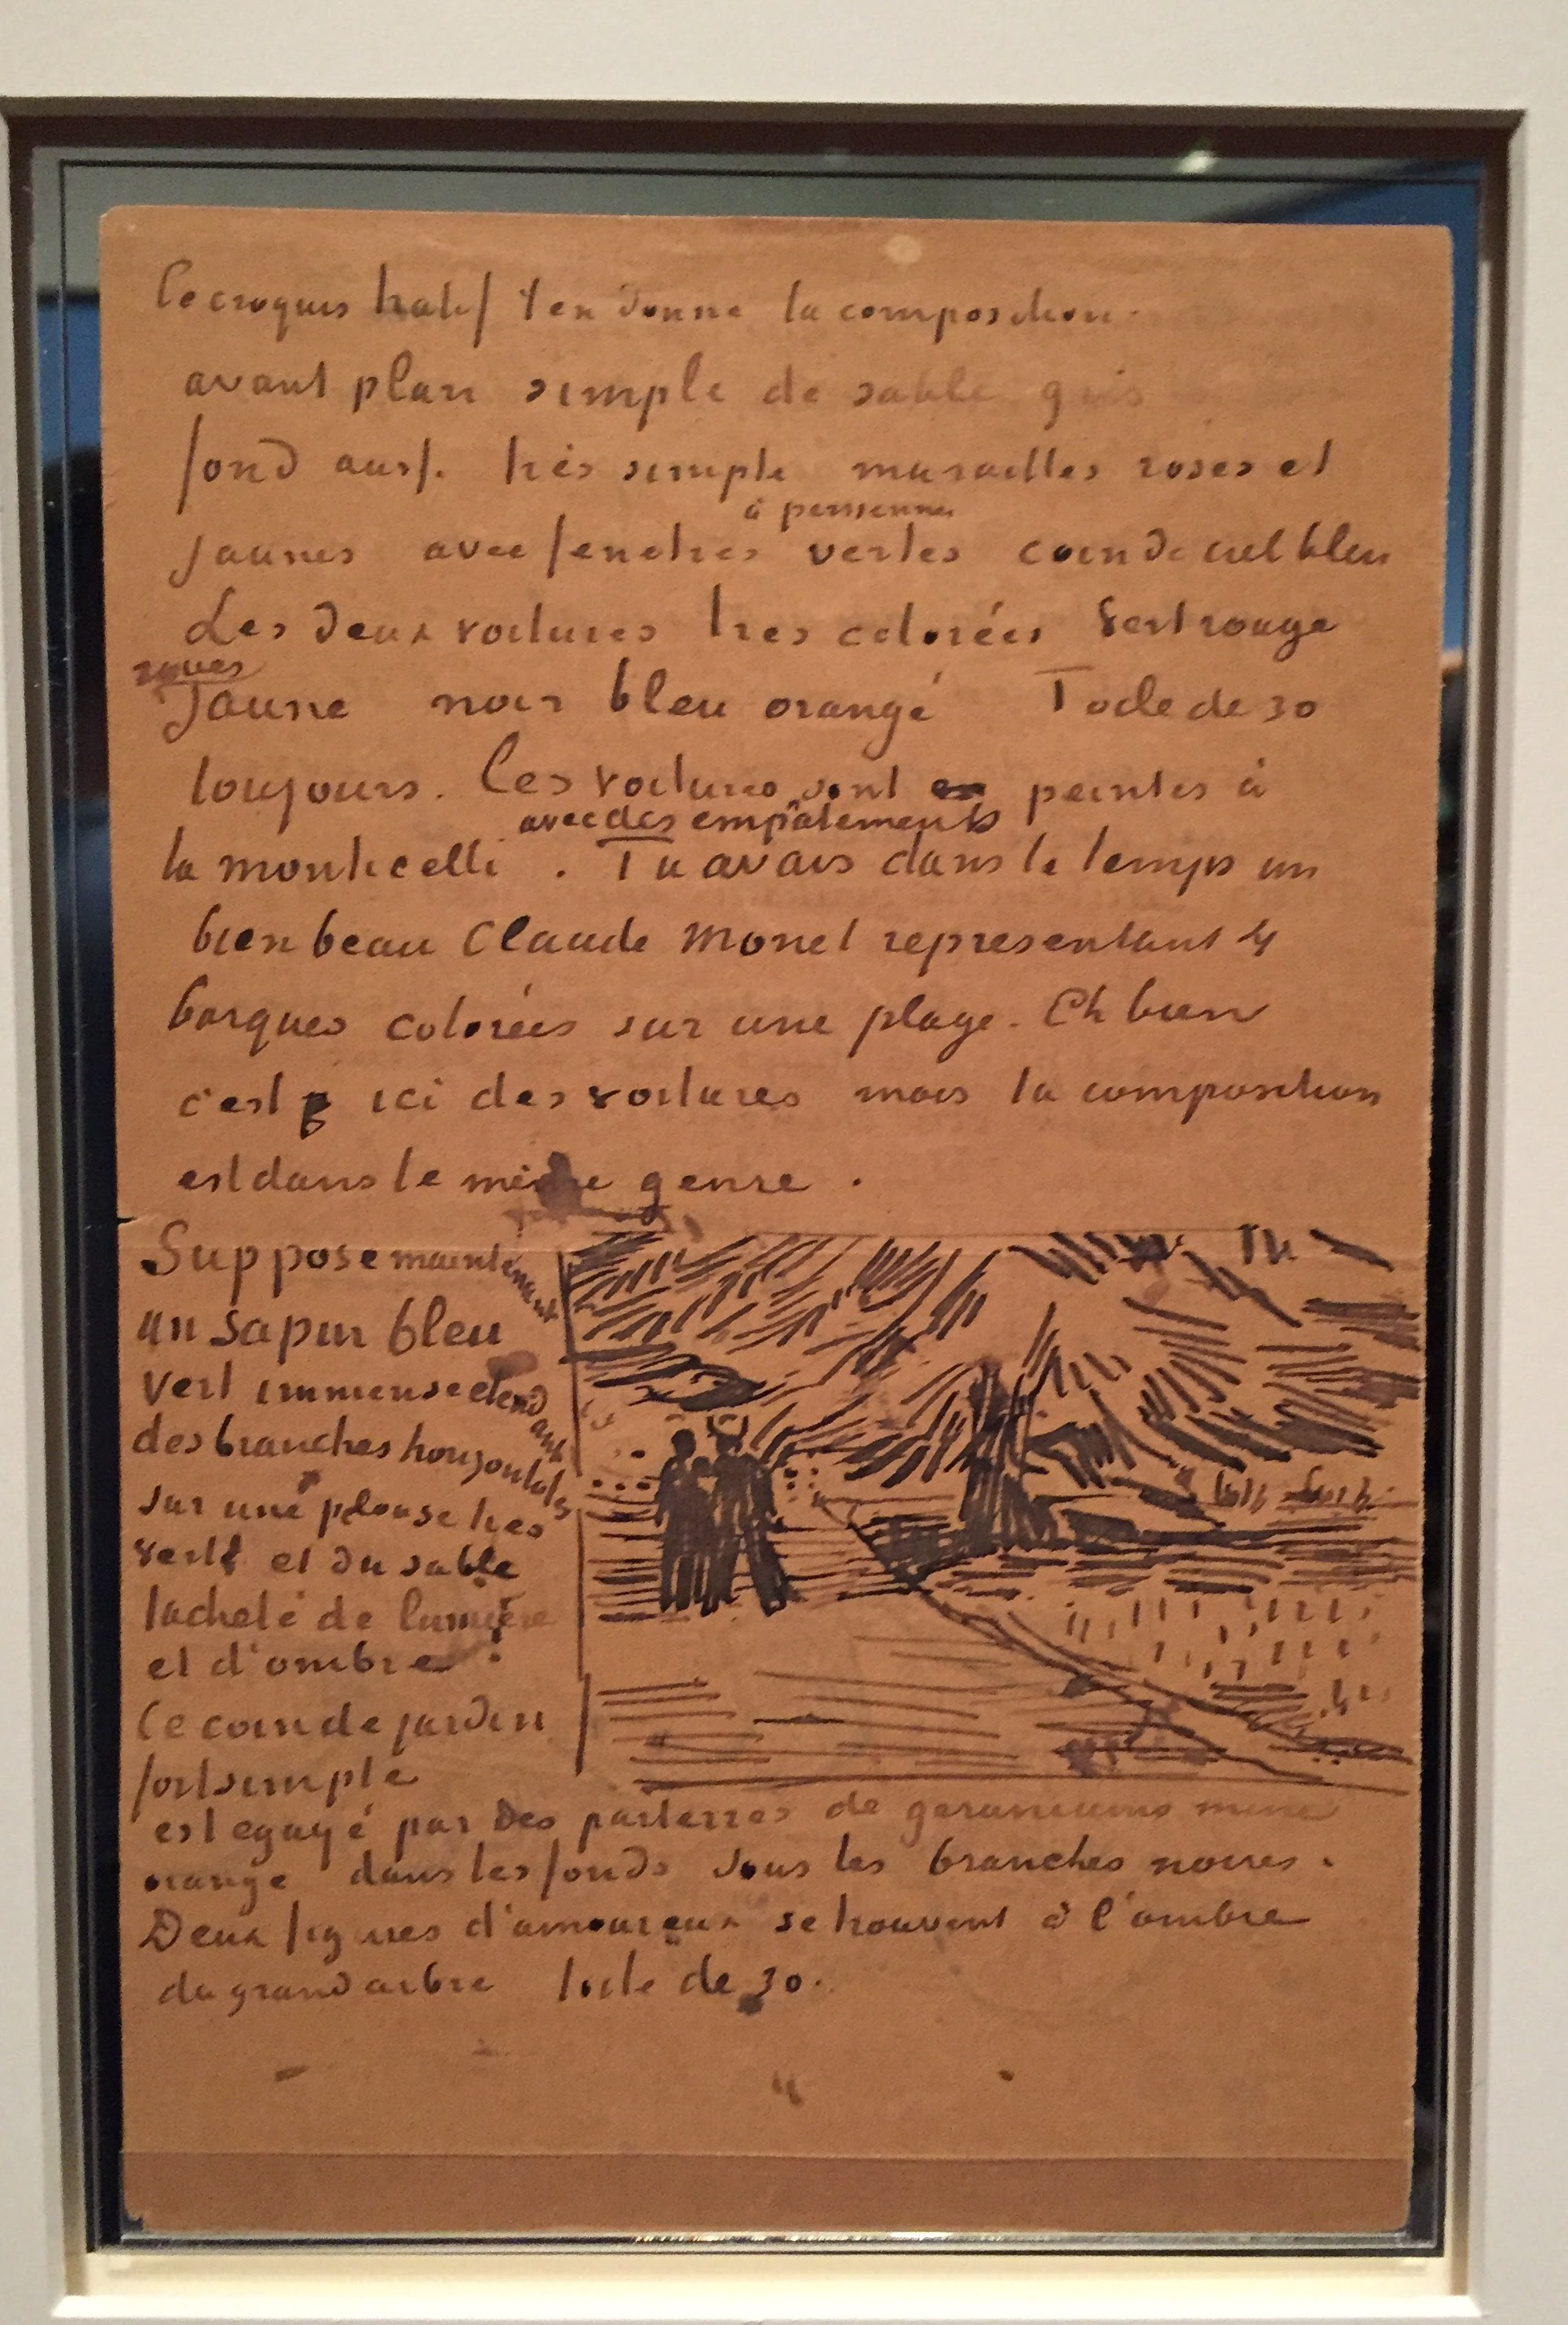 Ce croquis hatif t'en donne la composition.
avant plan simple de sable gris
fond aussi très simple murailles roses et
à persiennes
jaunes avec fenetres vertes coin de ciel bleu
Les deux voitures tres colorées vert rouge
roues
jaune noir bleu orangé Toile de 30
toujours. Les voitures sont peintes à
avec des empâtements
la monticelli. Tu avais dans le temps un
bien beau Claude Monet representant 4
barques colorées sur une plage. Eh bien
c'est ici des voitures mais la composition
est dans le même genre.
Suppose maintenant
un sapin bleu
vert immense etendant
des branches horizontales
sur une pelouse tres
verte et du sable
tacheté de lumière
et d'ombre.
Ce coin de jardin
fort simple
est egayé par Des parterres de geraniums mine
orange dans les fonds sous les branches noires.
Deux figures d'amoureux se trouvent à l'ombre
du grand arbre toile de 30.